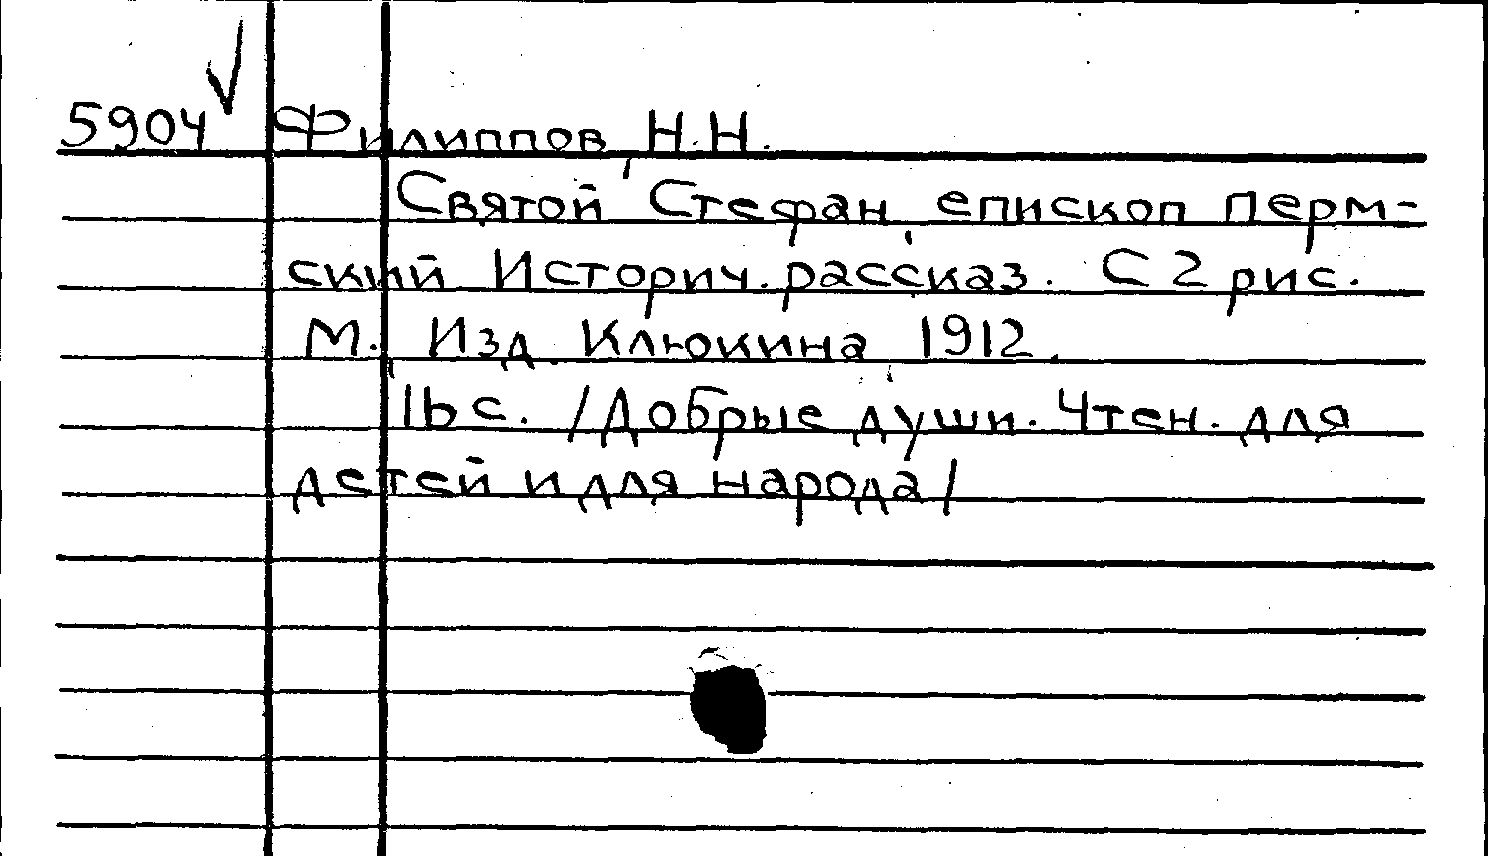 5904 Филиппов, Н.Н.
Святой Стефан, епископ перм-
ский Историч. рассказ. С 2 рис.
М. Изд. Клюкина 1912.
16 с. /Добрые души. Чтен. для
детей и для народа/